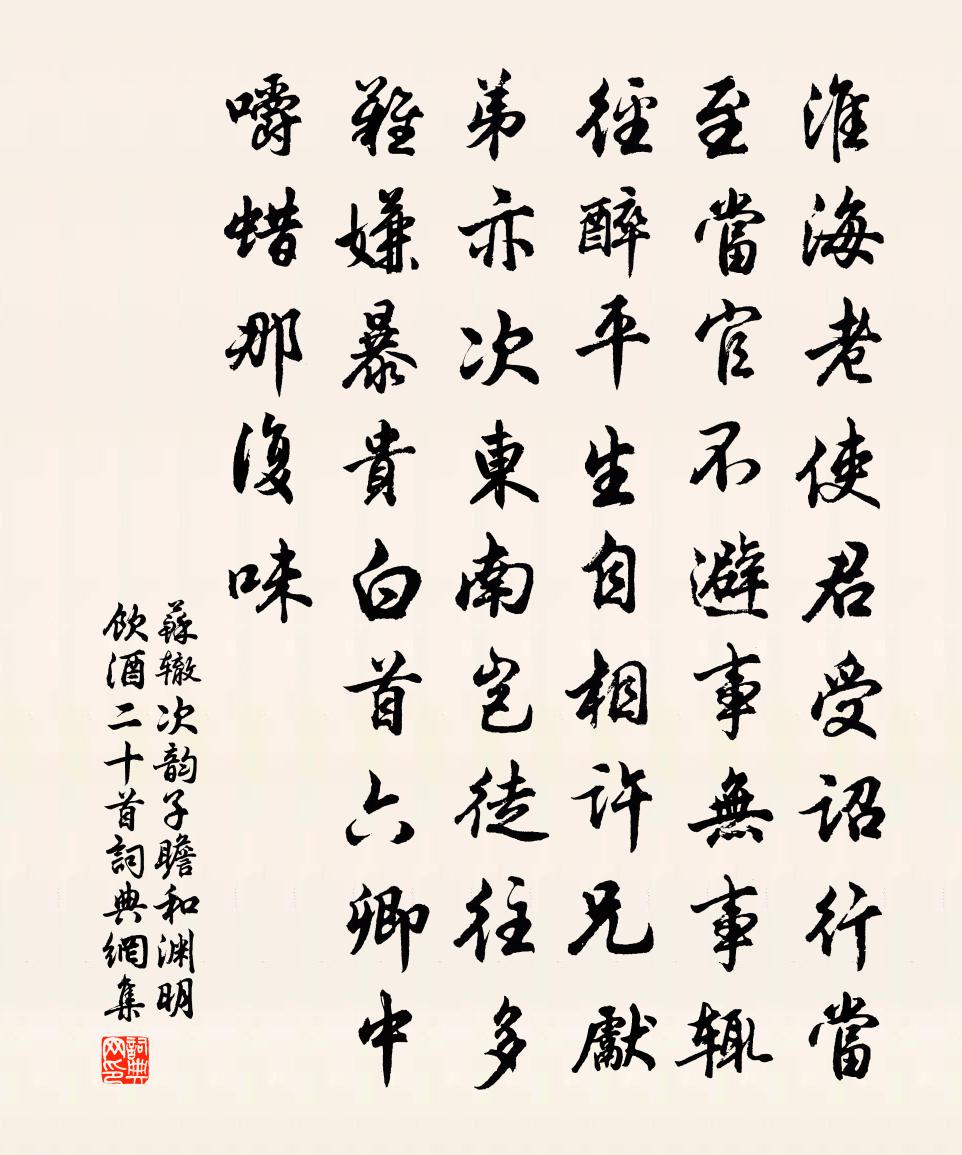 淮海老使君受詔行當
至當官不避事無事輒
徑醉平生自相許兄獻
弟亦次東南豈徒往多
難嫌暴貴白首六卿中
嚼蜡那復味
蘇辙次韵子瞻和渊明
飲酒二十首詞典網集
詞典
网印